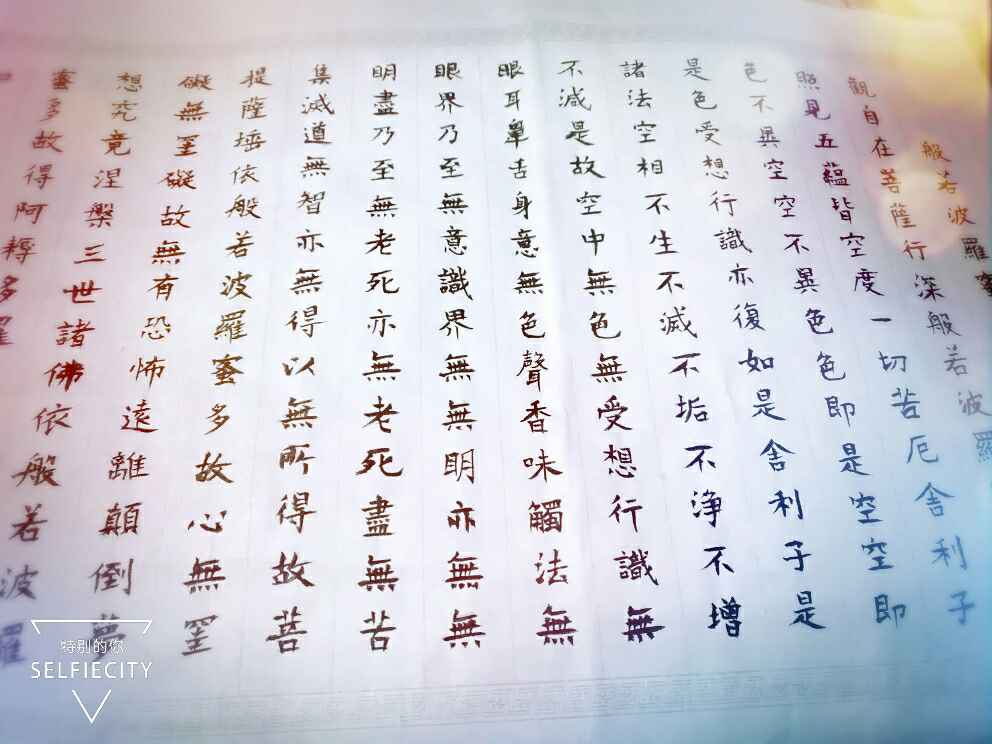 般若波羅蜜
觀自在菩薩行深般若波羅
照見五蘊皆空度一切苦厄舍利子
色不異空空不異色色即是空空即
是色受想行識亦復如是舍利子是
諸法空相不生不滅不垢不浄不增
不減是故空中無色無受想行識無
眼耳鼻舌身意無色聲香味觸法無
眼界乃至無意識界無無明亦無無
明盡乃至無老死亦無老死盡無苦
集滅道無智亦無得以無所得故菩
提薩埵依般若波羅蜜多故心無罣
礙無罣礙故無有恐怖遠離顛倒夢
想究竟涅槃三世諸佛依般若波羅
蜜多故得阿耨多羅
特别的你
SELFIECITY